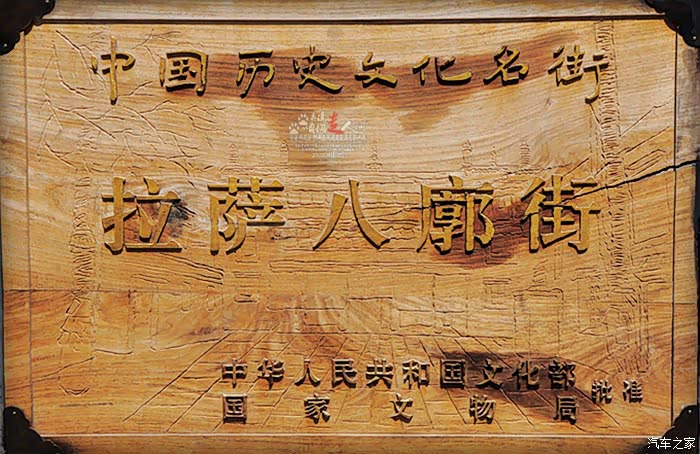 中国历史文化名街
拉萨八廓街
中华人民共和国文化部
国家文物局
批准
汽车之家